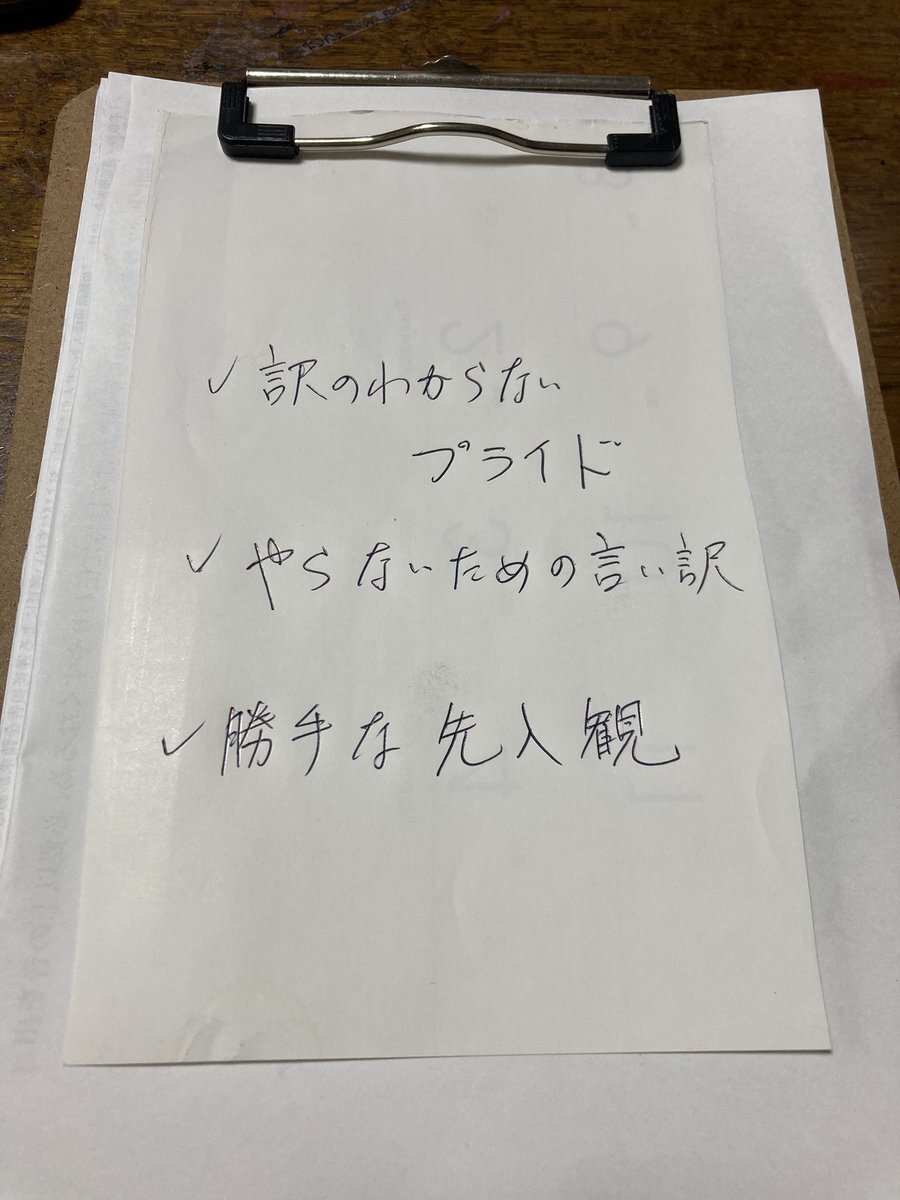 ✓ 訳のわからない
プライド
✓ やらないための言い訳
✓ 勝手な先入観